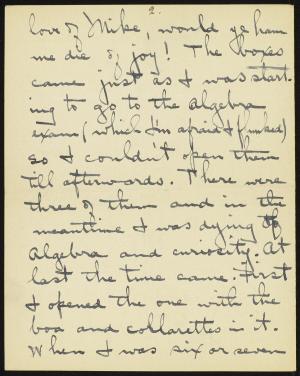 2.
love of Mike, would ye have
me die of joy! The boxes
came just as I was start-
ing to go to the algebra
exam (which I'm afraid I flunked)
so I couldn't open them
till afterwards. There were
three of them and in the
meantime I was dying of
Algebra and curiosity. At
last the time came. First
I opened the one with the
boa and collarettes in it.
When I was six or seven